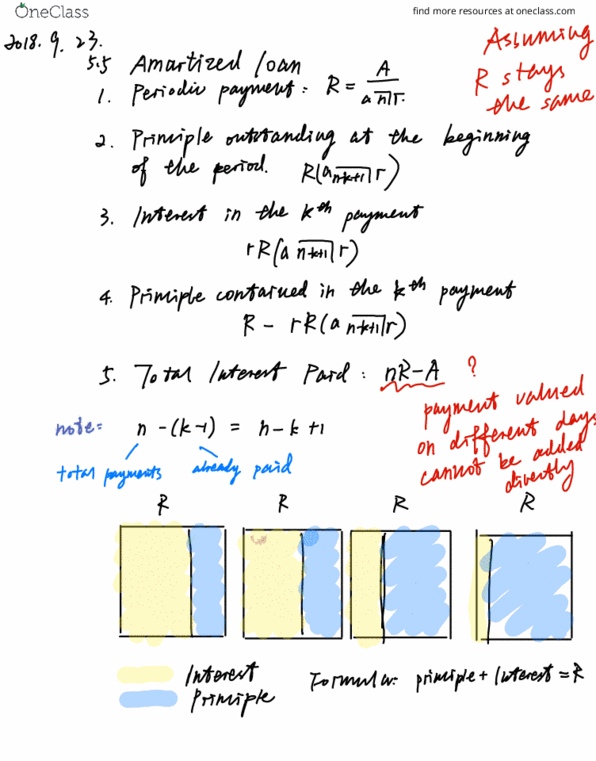 OneClass
find more resources at oneclass.com
2018. 9. 23.
Assuming
R stays
the same
5.5 Amartized loan
1. Periodic payment: R = A / a n̅|r.
2. Principle outstanding at the beginning
of the period. R(a n-k+1|r)
3. Interest in the kth payment
rR(a n-k+1|r)
4. Principle contained in the kth payment
R - rR(a n-k+1|r)
5. Total Interest Paid: nR-A ?
payment valued
on different days
cannot be added
directly
note: n-(k-1) = n-k+1
total payments already paid
R R R R
Interest
Principle
Formula: principle + Interest = R